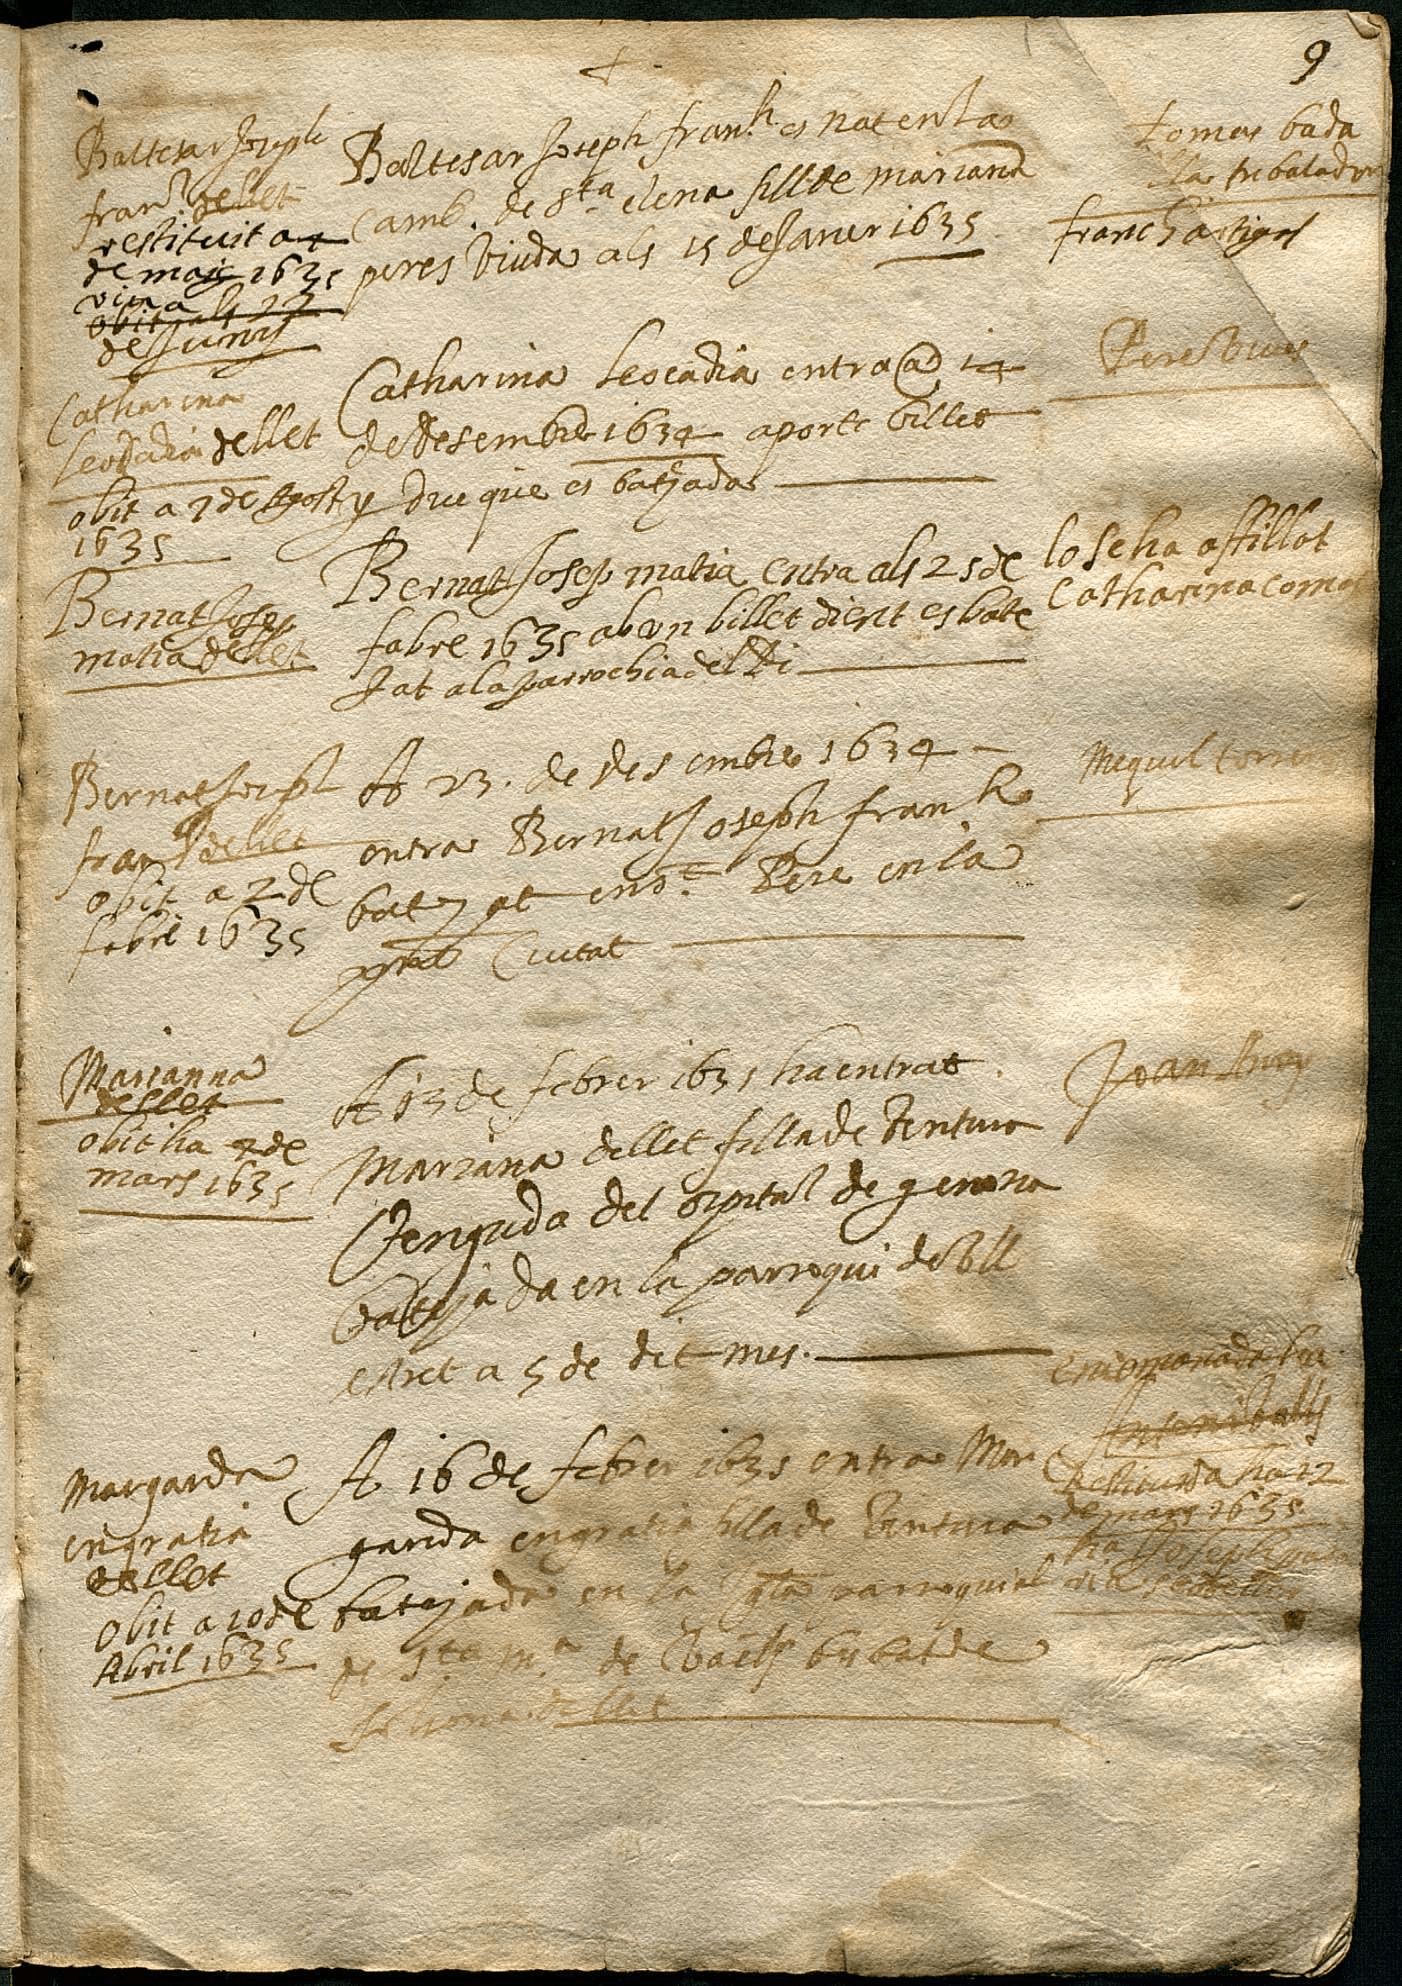 9
Baltesar Joseph
fran.ch dellet
restituit a 4
de maig 1635
vina
obit als 22
de Juny
Baltesar Joseph fran.ch es nat en la
camb. de Sta elena fill de mariana
peres viuda als 15 de Janer 1635
tomas bada
la trebalador
franch artigas
Catharina
Leocadia dellet
obit a 7 de Agost
1635
Catharina Leocadia entra a 14
de Desembre 1634 aporte billet
y diu que es batejada
Pere vives
Bernat Josep
matia dellet
Bernat Josep matia entra als 25 de
fabre 1635 ab un billet dient es bate
Jat a la parrochia del Pi
lo se ha afillat
Catharina coma
Bernat Joseph
fran.ch dellet
obit a 2 de
febre 1635
A 23. de desembre 1634
entra Bernat Joseph fran.ch
batejat en St. Pere en la
pnt Ciutat
Miquel
Marianna
dellet
obit ha 7 de
mars 1635
A 13 de febrer 1635 ha entrat
Mariana dellet filla de Ventura
Venguda del ospital de gerona
batejada en la parroqui de Vll
estret a 5 de dit mes.
Joan
Margarida
engratia
dellet
obit a 10 de
Abril 1635
A 16 de febrer 1635 entra Mar
garida engratia filla de Ventura
batejada en la parroquial
de Sta Ma de Valls bisbat de
dellet
encomanada ha
Antoni Valls
Restituida ha 12
de mars 1635
ha Joseph